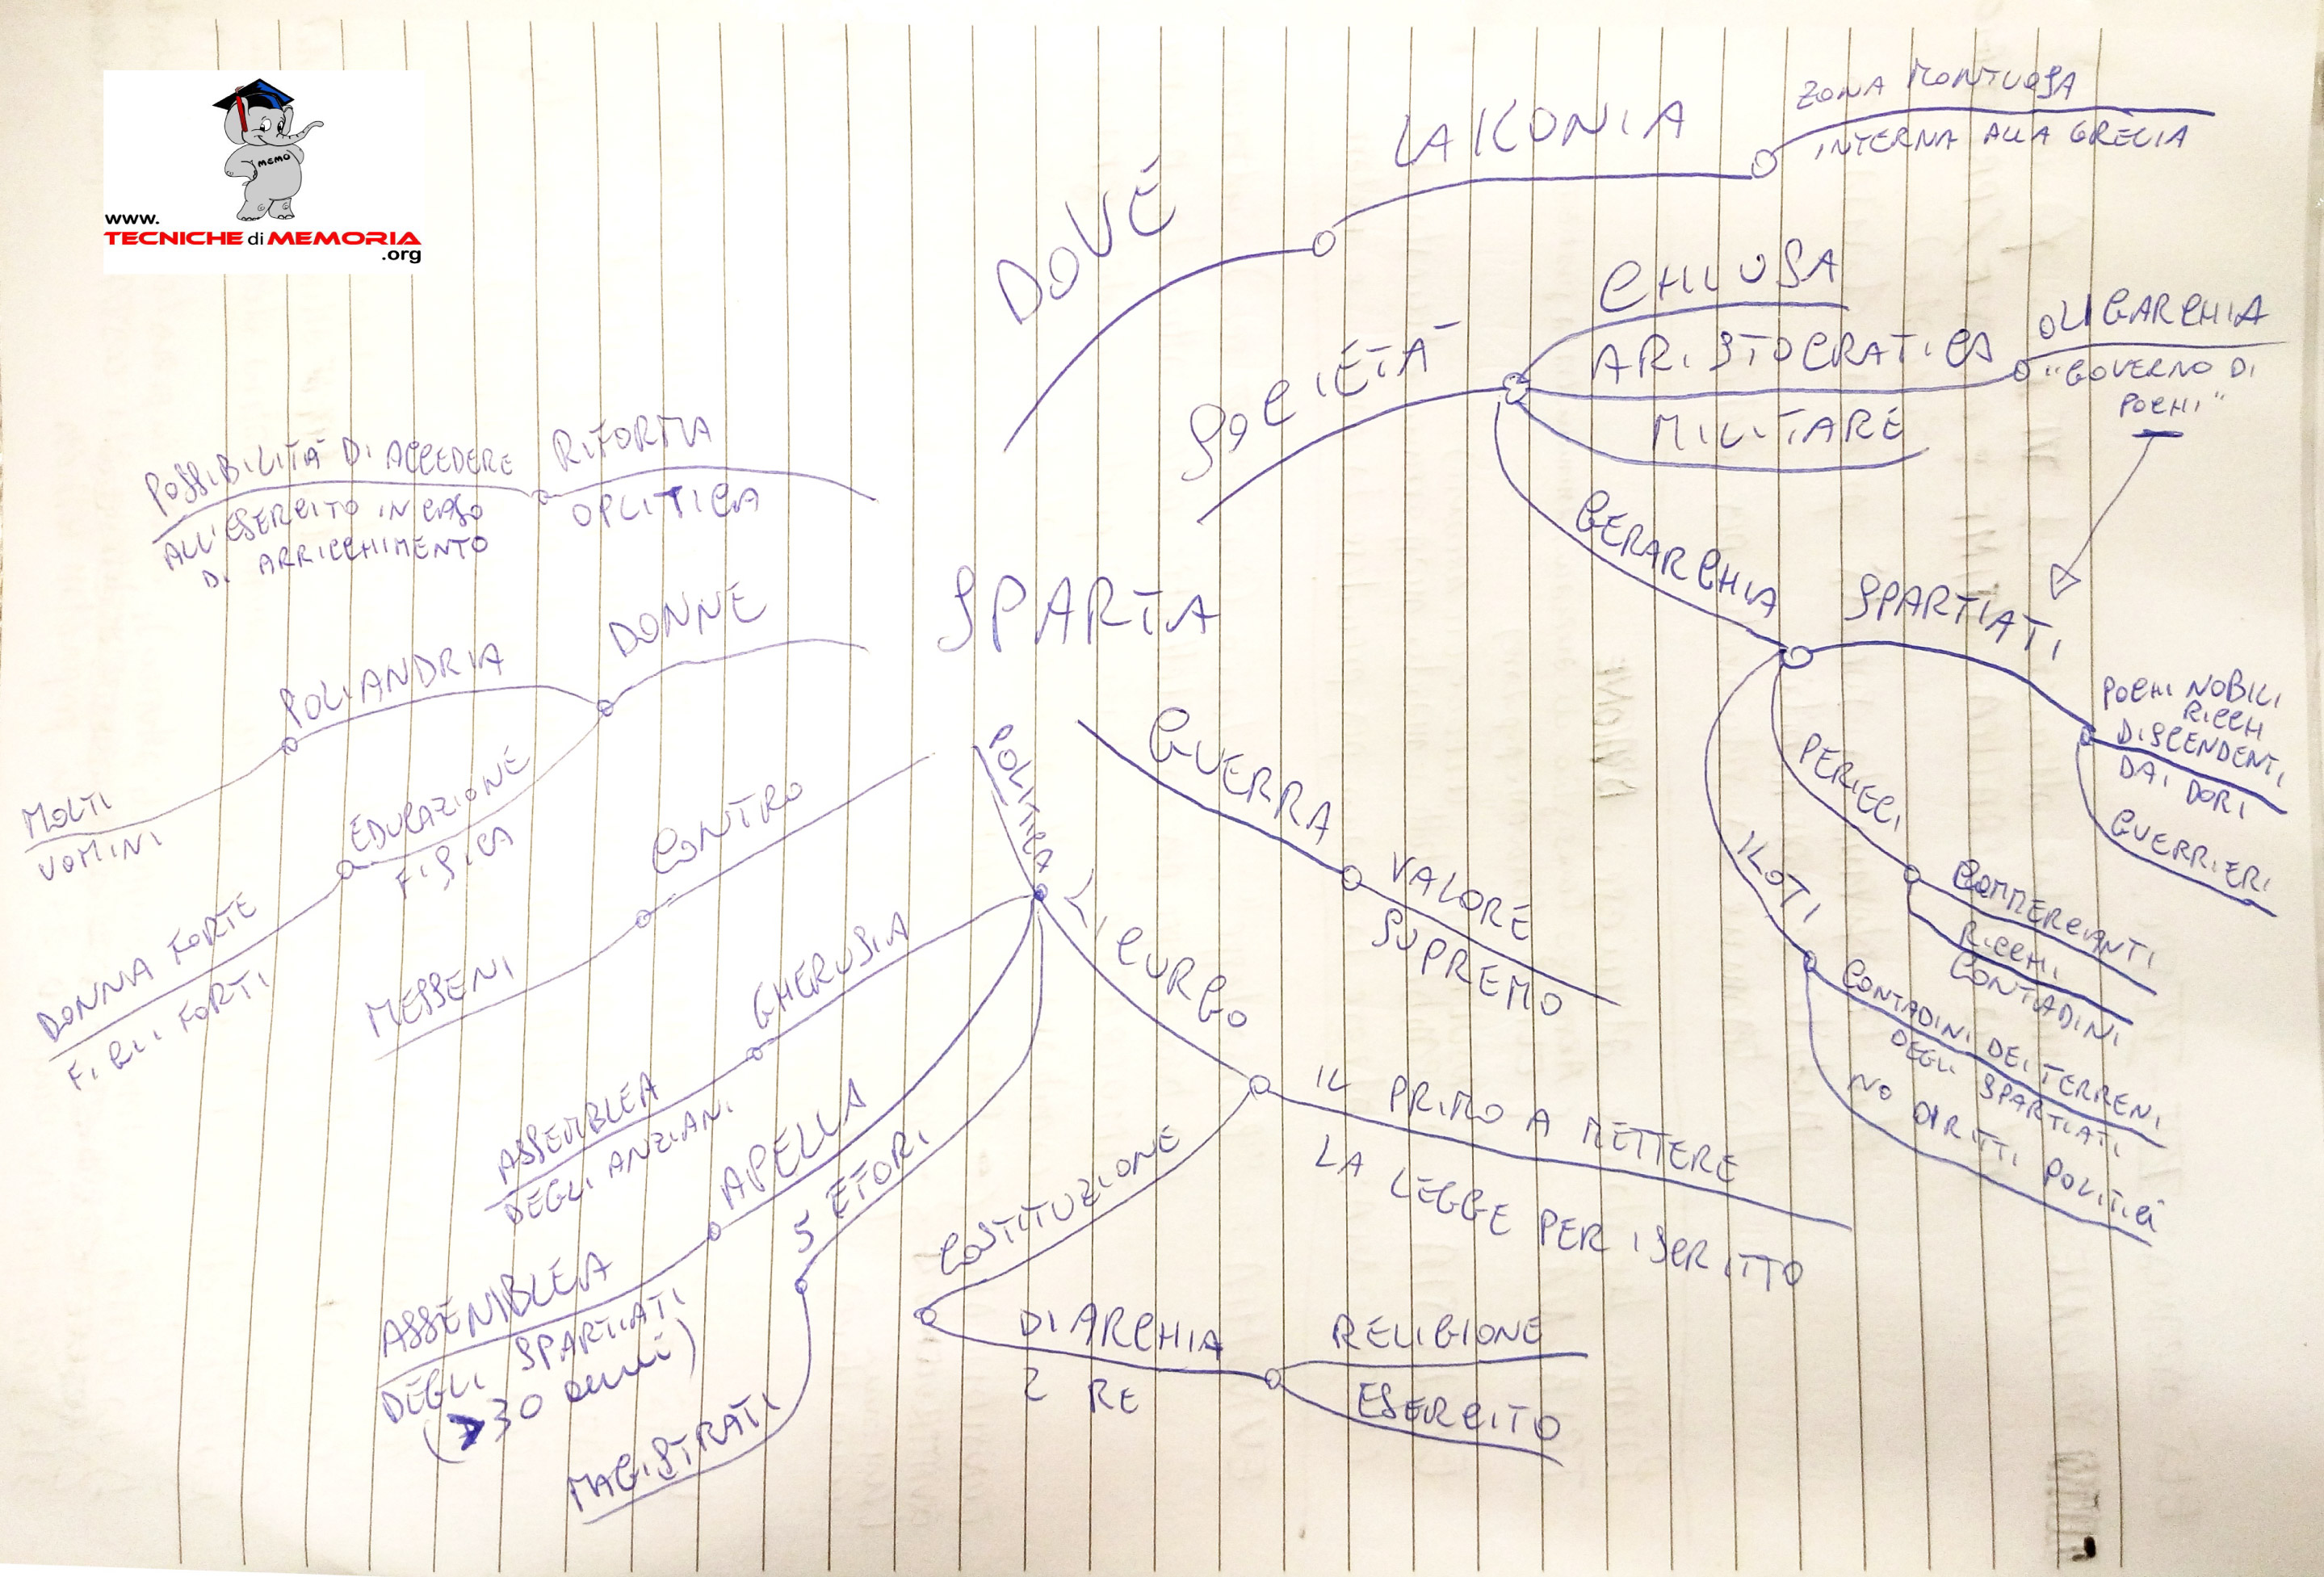 MEMO
www.
TECNICHE di MEMORIA
.org
SPARTA
DOVE
LAKONIA
ZONA MONTUOSA
INTERNA ALLA GRECIA
SOCIETÀ
CHIUSA
ARISTOCRATICA
OLIGARCHIA
"GOVERNO DI
POCHI"
MILITARE
GERARCHIA
SPARTIATI
POCHI NOBILI
RICCHI
DISCENDENTI
DAI DORI
GUERRIERI
PERIECI
COMMERCIANTI
RICCHI
CONTADINI
ILOTI
CONTADINI DEI TERRENI
DEGLI SPARTIATI
NO DIRITTI POLITICI
GUERRA
VALORE
SUPREMO
POLITICA
LICURGO
IL PRIMO A METTERE
LA LEGGE PER ISCRITTO
COSTITUZIONE
DIARCHIA
2 RE
RELIGIONE
ESERCITO
5 EFORI
MAGISTRATI
APELLA
ASSEMBLEA
DEGLI SPARTIATI
(>30 anni)
GHERUSIA
ASSEMBLEA
DEGLI ANZIANI
CONTRO
MESSENI
DONNE
POLIANDRIA
MOLTI
UOMINI
EDUCAZIONE
FISICA
DONNA FORTE
FIGLI FORTI
RIFORMA
OPLITICA
POSSIBILITÀ DI ACCEDERE
ALL'ESERCITO IN CASO
DI ARRICCHIMENTO